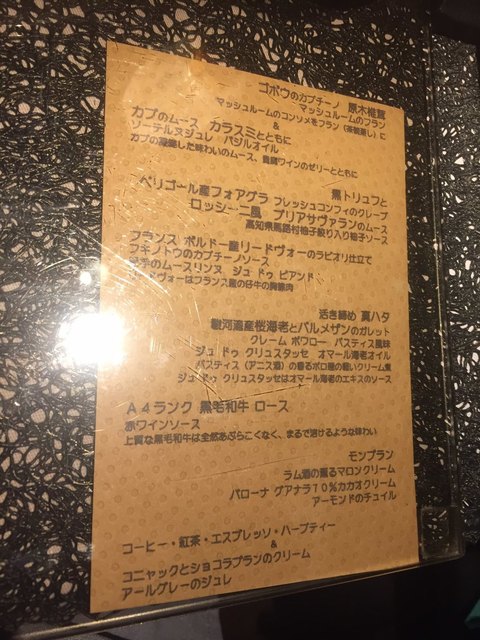 ゴボウのカプチーノ 原木椎茸
マッシュルームのフラン
マッシュルームのコンソメをフラン（茶碗蒸し）に
&
カブのムース カラスミとともに
ソーテルヌジュレ バジルオイル
カブの凝縮した味わいのムース、貴腐ワインのゼリーとともに
黒トリュフと
ペリゴール産フォアグラ フレッシュコンフィのクレープ
ロッシーニ風 ブリアサヴァランのムース
高知県馬路村柚子絞り入り柚子ソース
フランス ボルドー産リードヴォーのラビオリ仕立て
フキノトウのカプチーノソース
のムースリンヌ ジュ ドゥ ビアンド
ヴォーはフランス産の仔牛の胸腺肉
活き締め 真ハタ
駿河湾産桜海老とパルメザンのガレット
クレーム ポワロー パスティス風味
ジュ ドゥ クリュスタッセ オマール海老オイル
パスティス（アニス酒）の香るポロ葱の軽いクリーム煮
ジュ ドゥ クリュスタッセはオマール海老のエキスのソース
A4ランク 黒毛和牛 ロース
赤ワインソース
上質な黒毛和牛は全然あぶらこくなく、まるで溶けるような味わい
モンブラン
ラム酒の薫るマロンクリーム
バローナ グアナラ70%カカオクリーム
アーモンドのチュイル
コーヒー・紅茶・エスプレッソ・ハーブティー
&
コニャックとショコラブランのクリーム
アールグレーのジュレ